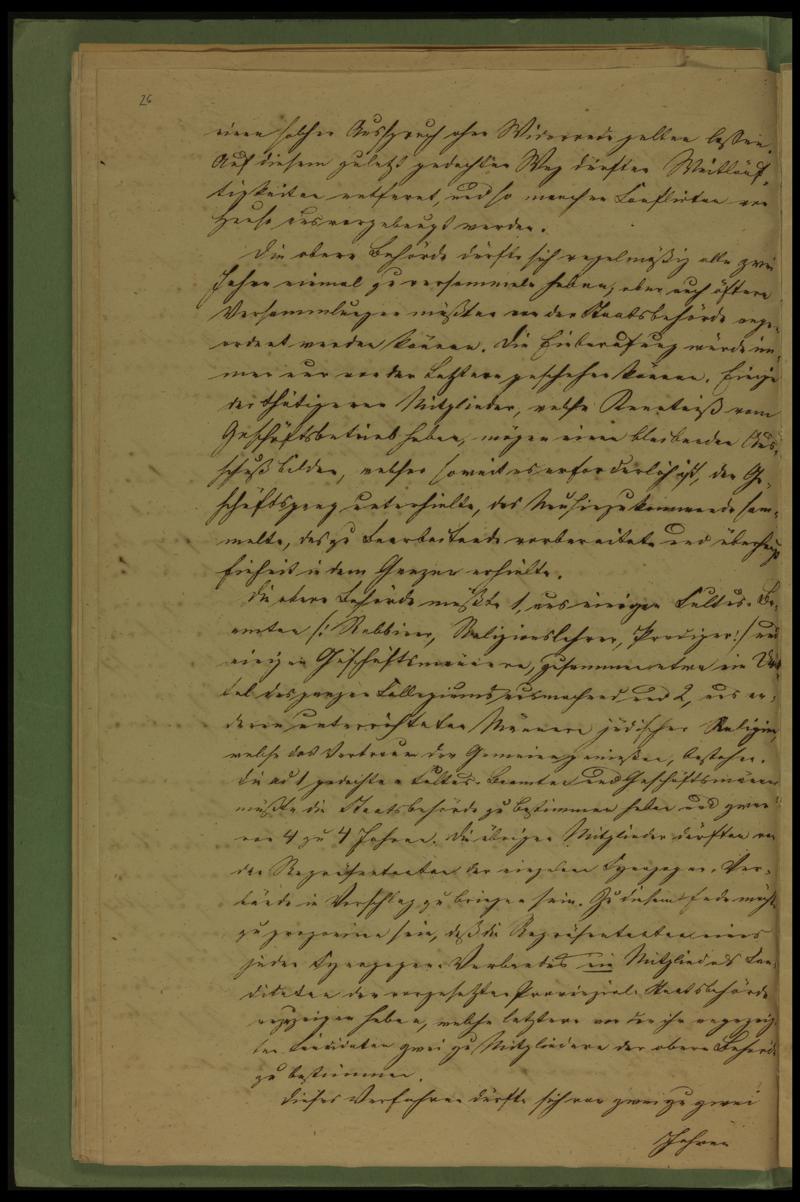 26
einen solchen Ausspruch ohne Widerrede gelten lassen.
Auf diesem zuletzt gedachten Weg dürften Weitläuf-
tigkeiten entfernt, und so manchen Conflicten von
Hause aus vorgebeugt werden.
Die obere Behörde dürfte sich regelmäßig alle zwei
Jahre einmal zu versammeln haben, aber auch öftere
Versammlungen müßten von der Staatsbehörde ange-
ordnet werden können. Die Einberufung würde im-
mer nur von der Letztern geschehen können. Einige
der thätigeren Mitglieder, welche Kenntniß vom
Geschäftsbetrieb haben, mögen einen bleibenden Aus-
schuß bilden, welcher soweit es erforderlich ist, den Ge-
schäftsgang unterhielte, das Neuhinzukommende sam-
melte, das zu Bearbeitende vorbereitete und überhaupt
Einheit in dem Ganzen erhielte.
Die obere Behörde müßte 1, aus einigen Cultus-Be-
amten /: Rabbiner, Religionslehrer, Prediger :/ und
einigen Geschäftsmännern, zusammen etwa ein Drit-
tel des ganzen Collegiums ausmachend und 2, aus an-
deren unterrichteten Männern jüdischer Religion,
welche das Vertrauen der Gemeinen genießen, bestehen.
Die ad 1 gedachten Cultus-Beamten und Geschäftsmänner
müßte die Staatsbehörde zu bestimmen haben und zwar
von 4 zu 4 Jahren. Die übrigen Mitglieder dürften von
den Repräsentanten der einzelnen Synagogen-Ver-
bände in Vorschlag zu bringen sein. Zu diesem Ende möchte
zu proponiren sein, daß die Repräsentanten eines
jeden Synagogen-Verbandes ein Mitglied als Can-
didaten der vorgesetzten Provinzial-Staatsbehörde
anzuzeigen haben, welche letztere von den ihr angezeig-
ten Candidaten zwei zu Mitgliedern der obern Behörde
zu bestimmen.
Dieses Verfahren dürfte sich von zwei zu zwei
Jahren